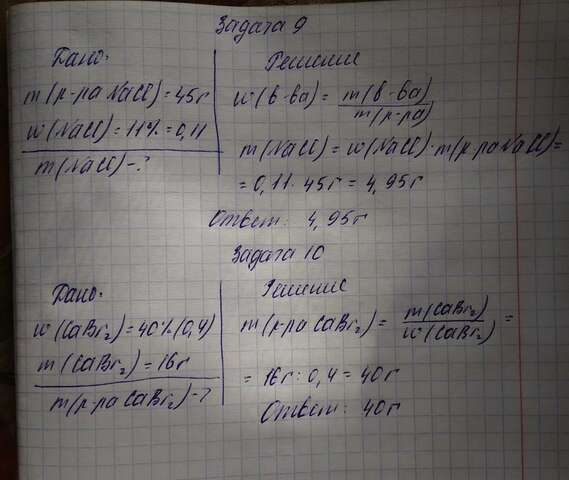 Задача 9
Дано:
m(р-ра NaCl)=45г
w(NaCl)=11%=0,11
m(NaCl)-?
Решение
w(в-ва)= m(в-ва)/m(р-ра)
m(NaCl)=w(NaCl)·m(р-ра NaCl)=
=0,11·45г=4,95г
Ответ: 4,95г
Задача 10
Дано:
w(CaBr₂)=40%(0,4)
m(CaBr₂)=16г
m(р-ра CaBr₂)-?
Решение
m(р-ра CaBr₂)= m(CaBr₂)/w(CaBr₂)=
=16г:0,4=40г
Ответ: 40г